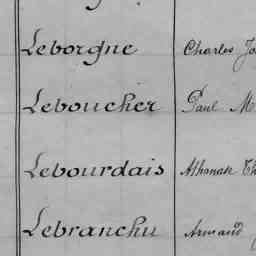 Leborgne Charles
Leboucher Paul
Lebourdais Athanase
Lebranchu Armand